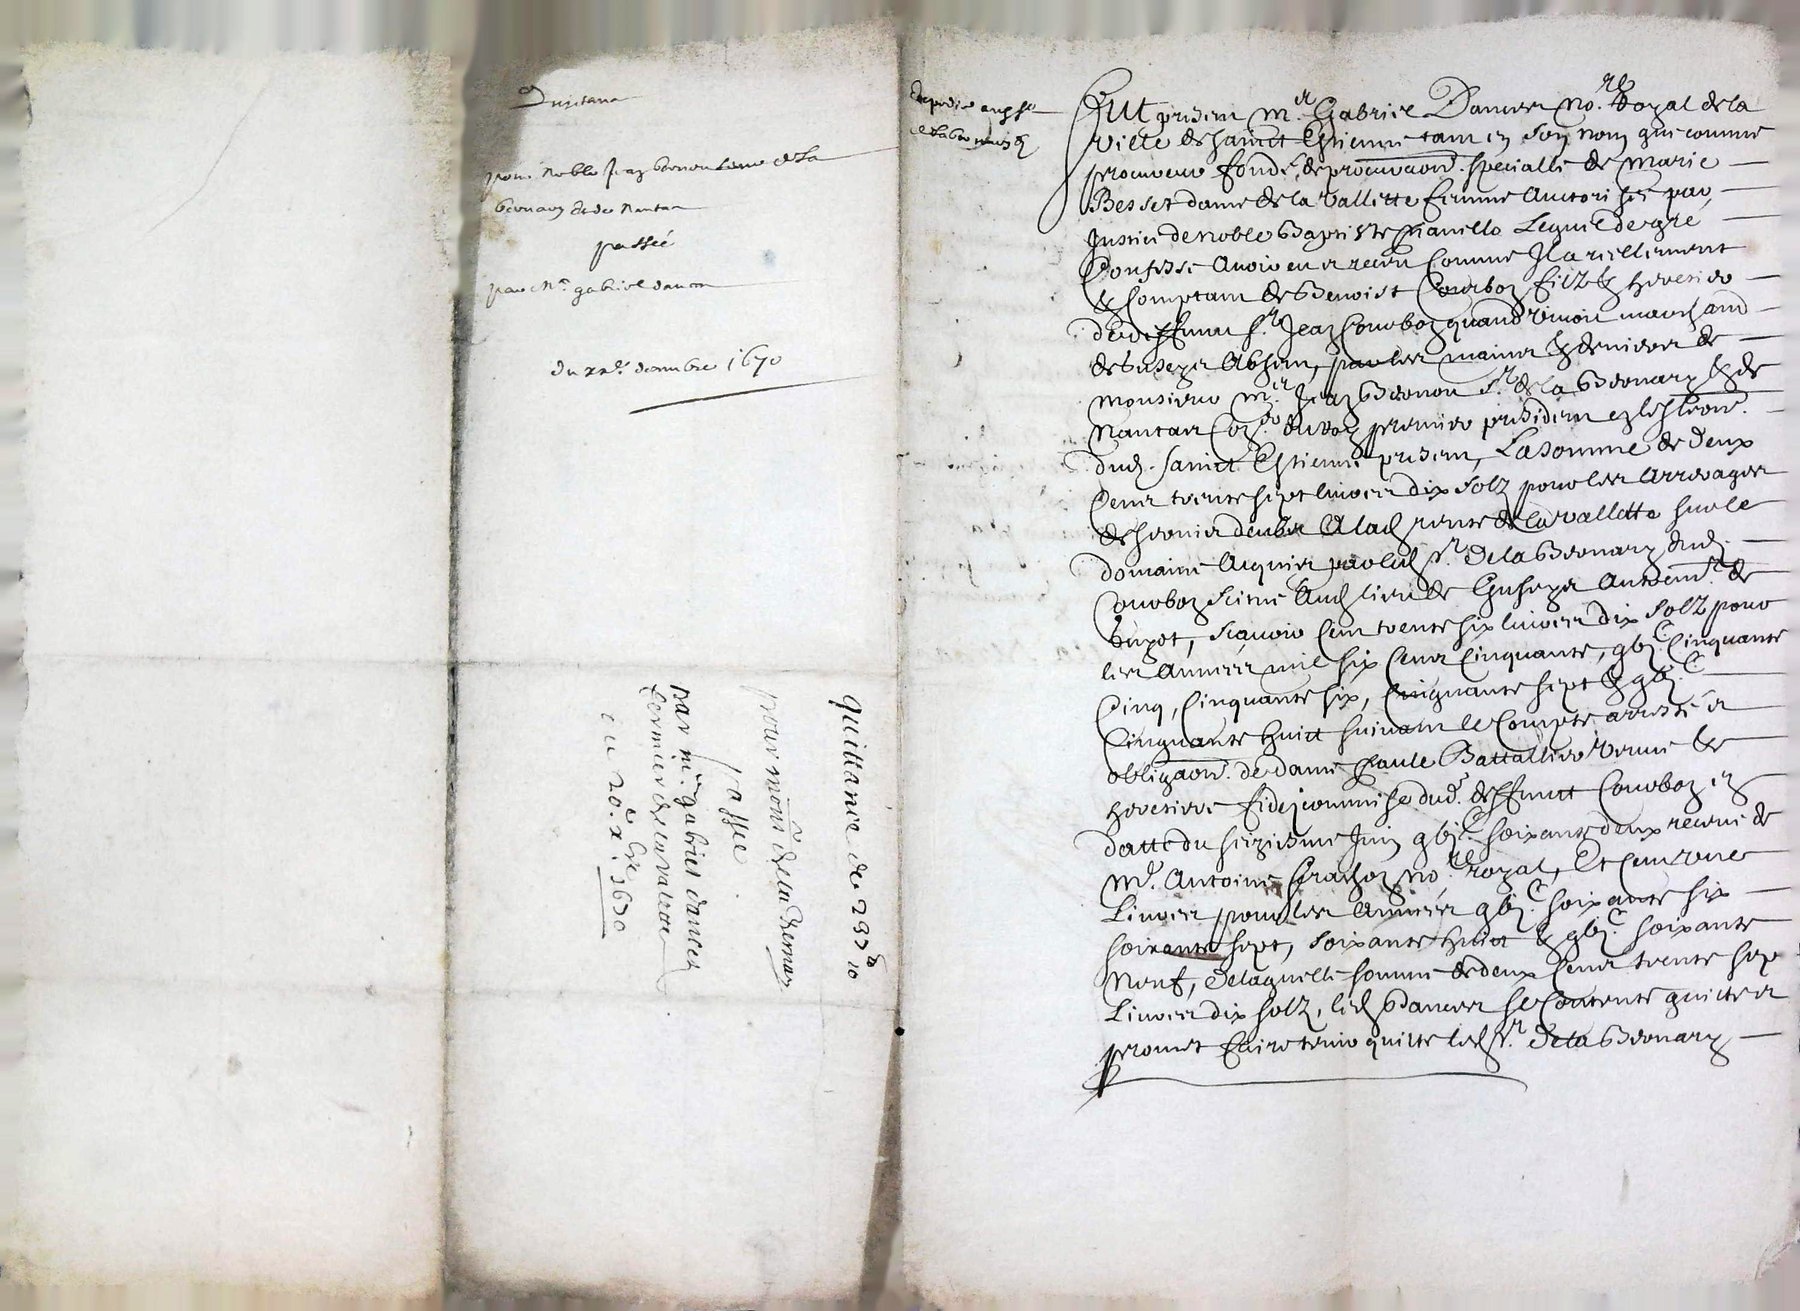 Quittance
pour noble Jean Bernou sieur de la
bernary & de Nantas
passée
par Me gabriel dancer
du xxe. decembre 1670
quittance de 237 lt 10
pour monsr de la bernary
passée
par me gabriel dancer
fermier de la valette
du 20e xbre 1670
Expedié aud sr
de la bernary
Fut present Mer Gabriel Dancer Nore Royal de la
ville de Sainct Estienne tant en son nom que comme
procureur fondé de procuraon. specialle de Marie
Besset dame de la Vallette femme auctorisée par
Justice de noble Baptiste Lequel de gré
Confesse avoir eu et receu comme Il a reellement
& comptant de Benoist Courbon filz & heretier
de deffunct sr Jean Courbon quand vivoit marchand
absent, par les mains & deniers de
Monsieur Mer Jean Bernou sr de la Bernary & de
Nantas Coner du Roy premier president en l'eslection
dud. Sainct Estienne present, La somme de deux
Cent trente sept livres dix solz pour les arrerages
deubz a lad rente de la vallette sur le
domaine acquis par led sr de la Bernary dud.
Courbon scitué aud lieu de
, sçavoir Cent trente six livres dix solz pour
les années mil six Cent Cinquante, gbjc Cinquante
Cinq, Cinquante six, Cinquante sept & gbjc
Cinquante huict suivant le Compte arresté et
obligaon. de dame Paule Battallier vefve &
heretiere fideicommise dud. deffunct Courbon en
datte du seiziesme Juin gbjc soixante deux receue de
Me. Antoine Nore Royal, Et Cent une
Livres pour les années gbjc soixante six
soixante sept, soixante huict & gbjc soixante
Neuf, de laquelle somme de deux Cent trente sept
Livres dix solz, led Dancer se Contente quitte et
promet faire tenir quitte led sr. de la Bernary